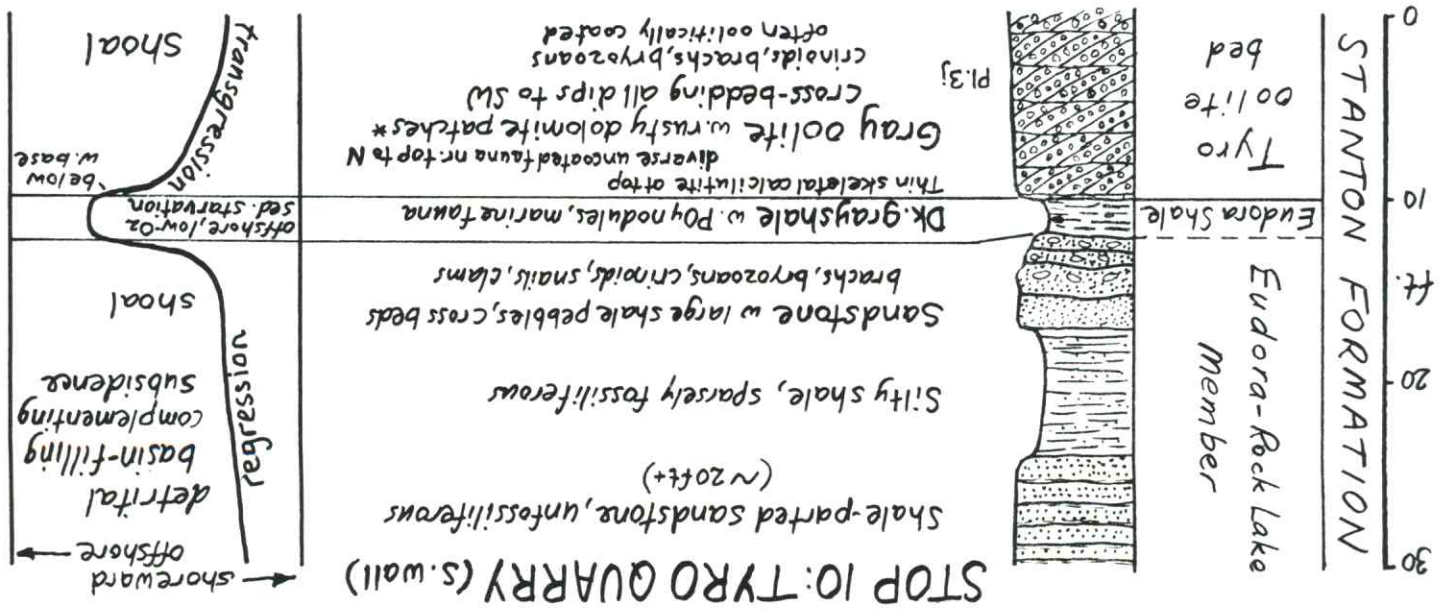 STOP 10: TYRO QUARRY (s. wall)
30
20
ft.
10
0
STANTON FORMATION
Eudora-Rock Lake
member
Eudora Shale
Tyro
oolite
bed
Pl. 3j
Shale-parted sandstone, unfossiliferous
(~20ft+)
Silty shale, sparsely fossiliferous
Sandstone w large shale pebbles, cross beds
brachs, bryozoans, crinoids, snails, clams
Dk. gray shale w. PO4 nodules, marine fauna
Thin skeletal calcilutite at top
diverse uncoated fauna nr. top to N
Gray oolite w. rusty dolomite patches*
cross-bedding all dips to SW
crinoids, brachs, bryozoans
often oolitically coated
← shoreward
offshore →
regression
detrital
basin-filling
complementing
subsidence
shoal
offshore, low-O2
sed. starvation
below
w. base
transgression
Shoal